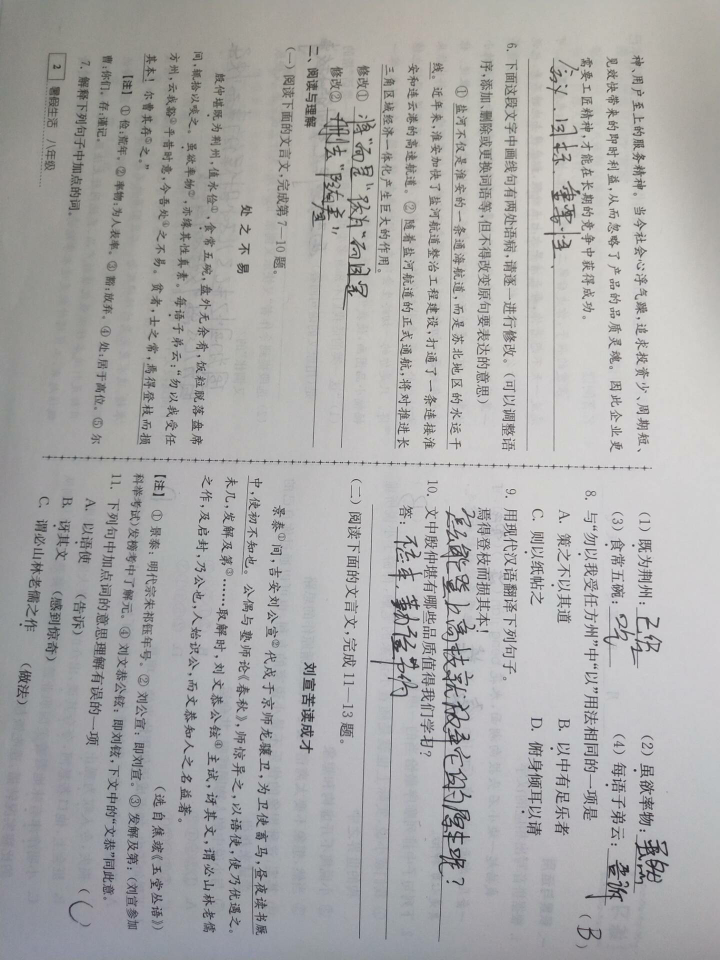 神、用户至上的服务精神。当今社会心浮气躁,追求投资少、周期短、
见效快带来的即时利益,从而忽略了产品的品质灵魂。因此企业更
需要工匠精神,才能在长期的竞争中获得成功。
含义、因标、重要性、
6. 下面这段文字中画线句有两处语病,请逐一进行修改。(可以调整语
序,添加、删除或更换词语等,但不得改变原句要表达的意思)
①盐河不仅是淮安的一条通海航道,而是苏北地区的水运干
线。近年来,淮安加快了盐河航道整治工程建设,打通了一条连接淮
安和连云港的高速航道。②随着盐河航道的正式通航,将对推进长
三角区域经济一体化产生巨大的作用。
修改① 将“而是”改为“而且是
修改② 删去“随着”
二、阅读与理解
(一) 阅读下面的文言文,完成第7-10题。
处之不易
殷仲堪既为荆州,值水俭①,食常五碗,盘外无余肴,饭粒脱落盘席
间,辄拾以啖之。虽欲率物②,亦缘其性真素。每语子弟云:“勿以我受任
方州,云我豁③平昔时意,今吾处④之不易。贫者,士之常,焉得登枝而损
其本!尔曹其存⑤之。”
【注】 ①俭:荒年。②率物:为人表率。③豁:放弃。④处:居于高位。⑤尔
曹:你们。存:谨记。
7. 解释下列句子中加点的词。
2 暑假生活 八年级
(1) 既为荆州: 已经 (2) 虽欲率物: 虽然
(3) 食常五碗: 吃 (4) 每语子弟云: 告诉
8. 与“勿以我受任方州”中“以”用法相同的一项是 (B)
A. 策之不以其道 B. 以中有足乐者
C. 则以纸帖之 D. 俯身倾耳以请
9. 用现代汉语翻译下列句子。
焉得登枝而损其本!
怎能登上高枝就损毁它的原本呢?
10. 文中殷仲堪有哪些品质值得我们学习?
答:
(二) 阅读下面的文言文,完成11-13题。
刘宣苦读成才
景泰①间,吉安刘公宣②代戍于京师龙骧卫,为卫使畜马,昼夜读书厩
中,使初不知也。公偶与塾师论《春秋》,师惊异之,以语使,使乃优遇之。
未几,发解及第③……取解时,刘文恭公铉④主试,讶其文,谓必山林老儒
之作,及启封,乃公也,人始识公,而文恭知人之名益著。
(选自焦竑《玉堂丛语》)
【注】 ①景泰:明代宗朱祁钰年号。②刘公宣:即刘宣。③发解及第:(刘宣参加
科举考试)发榜考中了解元。④刘文恭公铉:即刘铉,下文中的“文恭”同此意。
11. 下列句中加点词的意思理解有误的一项 (C)
A. 以语使 (告诉)
B. 讶其文 (感到惊奇)
C. 谓必山林老儒之作 (做法)